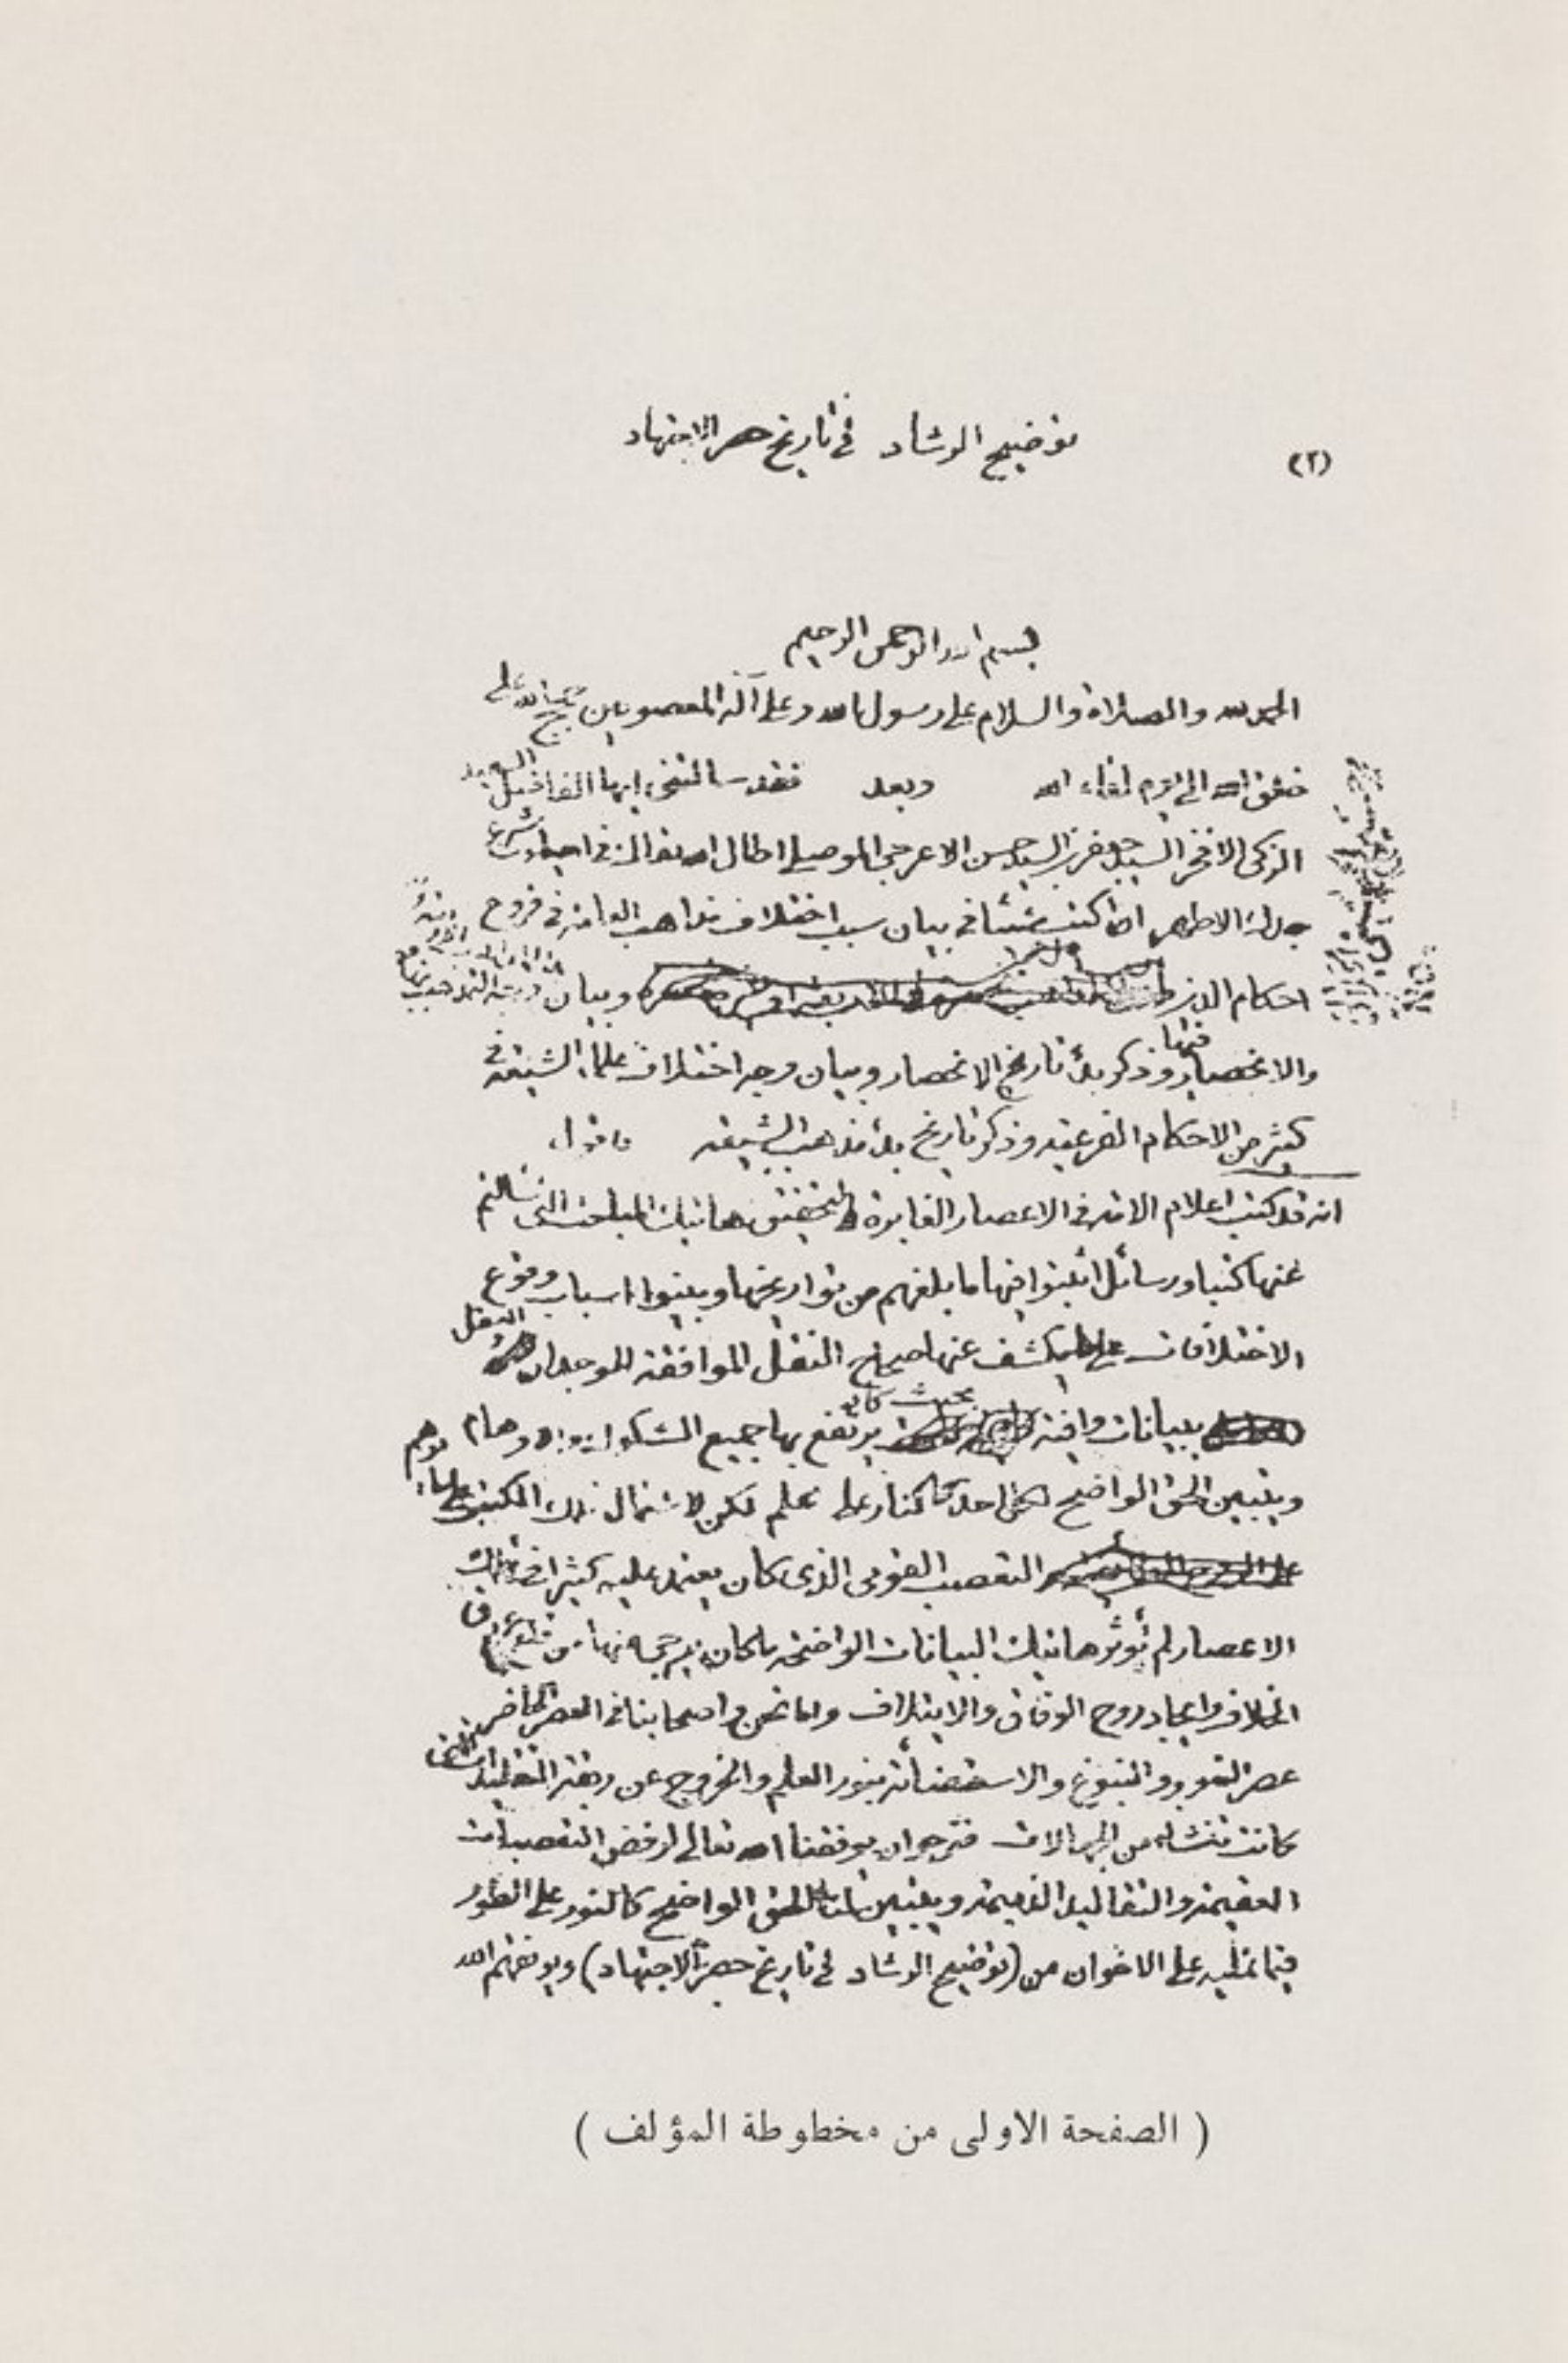 (٢)
توضيح الرشاد في تاريخ حصر الاجتهاد
بسم الله الرحمن الرحيم
الحمد لله والصلاة والسلام على رسول الله وعلى آله المعصومين حجج الله على
خلق الله الى يوم لقاء الله وبعد فقد سالتني ايها الفاضل السعيد
الزكى الافخر السيد جعفر بن السيد حسن الاعرجى الموصلى اطال الله بقاك في احياء شرع
جدك الاطهر ان اكتب شيئا في بيان سبب اختلاف مذاهب العامة في فروع
احكام الدين وبيان وجه التمذهب بها
والانحصار فيها وذكر بدأ تاريخ الانحصار وبيان وجه اختلاف علماء الشيعة في
كثير من الاحكام الفرعية وذكر تاريخ بدأ مذهب الشيعة فاقول
انه قد كتب اعلام الامة في الاعصار الغابرة لتحقيق هاتيك المباحث التى سالتم
عنها كتبا ورسائل اثبتوا فيها ما بلغهم من تواريخها وبينوا اسباب وقوع
الاختلافات على ما يكشف عنها صحاح النقل الموافقة للوجدان والعقل
ببيانات وافية بحيث كاد يرتفع بها جميع الشكوك والاوهام
ويتبين الحق الواضح لكل احد كالنار على علم لكن لاشتمال تلك الكتب على
التعصب القومى الذى كان يعتمد عليه كثيرا في تلك
الاعصار لم تؤثر هاتيك البيانات الواضحة ما كان يرجى منها من قلع
الخلاف وايجاد روح الوفاق والايتلاف واما نحن واصحابنا في العصر الحاضر
عصر التنوير والنبوغ والاستضائة بنور العلم والخروج عن ربقة التقليدات التى
كانت تنشاء من الجهالات فنرجو ان يوفقنا الله تعالى لرفض التعصبات
العقيمة والتقاليد الذميمة ويتبين لنا الحق الواضح كالنور على الطور
فيما نمليه على الاخوان من (توضيح الرشاد في تاريخ حصر الاجتهاد) ويوفقهم الله
( الصفحة الاولى من مخطوطة المؤلف )